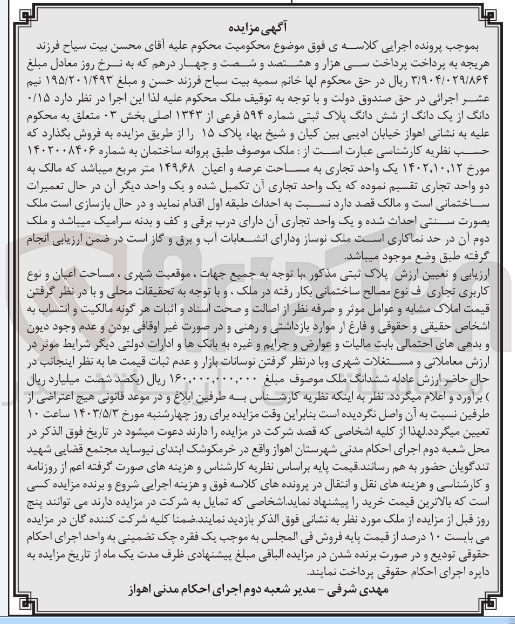 آگهی مزایده
بموجب پرونده اجرایی کلاسه ی فوق موضوع محکومیت محکوم علیه آقای محسن بیت سیاح فرزند
هریجه به پرداخت پرداخت سی هزار و هشتصد و شصت و چهار درهم که به نرخ روز معادل مبلغ
۳/۹۰۴/۰۲۹/۸۶۴ ریال در حق محکوم لها خانم سمیه بیت سیاح فرزند حسن و مبلغ ۱۹۵/۲۰۱/۴۹۳ نیم
عشر اجرائی در حق صندوق دولت و با توجه به توقیف ملک محکوم علیه لذا این اجرا در نظر دارد ۰/۱۵
دانگ از یک دانگ از شش دانگ پلاک ثبتی شماره ۵۹۴ فرعی از ۱۳۴۳ اصلی بخش ۰۳ متعلق به محکوم
علیه به نشانی اهواز خیابان ادیبی بین کیان و شیخ بهاء پلاک ۱۵ را از طریق مزایده به فروش بگذارد که
حسب نظریه کارشناسی عبارت است از : ملک موصوف طبق پروانه ساختمان به شماره ۱۴۰۲۰۰۸۴۰۶
مورخ ۱۴۰۲،۱۰،۱۲ یک واحد تجاری به مساحت عرصه و اعیان ۱۴۹،۶۸ متر مربع میباشد که مالک به
دو واحد تجاری تقسیم نموده که یک واحد تجاری آن تکمیل شده و یک واحد دیگر آن در حال تعمیرات
ساختمانی است و مالک قصد دارد نسبت به احداث طبقه اول اقدام نماید و در حال بازسازی است ملک
بصورت سنتی احداث شده و یک واحد تجاری آن دارای درب برقی و کف و بدنه سرامیک میباشد و ملک
دوم آن در حد نماکاری است ملک نوساز ودارای انشعابات آب و برق و گاز است در ضمن ارزیابی انجام
گرفته طبق وضع موجود میباشد.
ارزیابی و تعیین ارزش پلاک ثبتی مذکور ،با توجه به جمیع جهات ، موقعیت شهری ، مساحت اعیان و نوع
کاربری تجاری ف نوع مصالح ساختمانی بکار رفته در ملک ، و با توجه به تحقیقات محلی و با در نظر گرفتن
قیمت املاک مشابه و عوامل موثر و صرفه نظر از اصالت و صحت اسناد و اثبات هر گونه مالکیت و انتساب به
اشخاص حقیقی و حقوقی و فارغ از موارد بازداشتی و رهنی و در صورت غیر اوقافی بودن و عدم وجود دیون
و بدهی های احتمالی بابت مالیات و عوارض و جرایم و غیره به بانک ها و ادارات دولتی دیگر شرایط موثر در
ارزش معاملاتی و مستغلات شهری وبا درنظر گرفتن نوسانات بازار و عدم ثبات قیمت ها به نظر اینجانب در
حال حاضر ارزش عادله ششدانگ ملک موصوف مبلغ ۱۶۰،۰۰۰،۰۰۰،۰۰۰ ریال (یکصد شصت میلیارد ریال
) برآورد و اعلام میگردد. نظر به اینکه نظریه کارشناس به طرفین ابلاغ و در موعد قانونی هیچ اعتراضی از
طرفین نسبت به آن واصل نگردیده است بنابراین وقت مزایده برای روز چهارشنبه مورخ ۱۴۰۳/۵/۳ ساعت ۱۰
تعیین میگردد.لهذا از کلیه اشخاصی که قصد شرکت در مزایده را دارند دعوت میشود در تاریخ فوق الذکر در
محل شعبه دوم اجرای احکام مدنی شهرستان اهواز واقع در خرمکوشک ابتدای نیوساید مجتمع قضایی شهید
تندگویان حضور به هم رسانند.قیمت پایه براساس نظریه کارشناس و هزینه های صورت گرفته اعم از روزنامه
و کارشناسی و هزینه های نقل و انتقال در پرونده های کلاسه فوق و هزینه اجرایی شروع و برنده مزایده کسی
است که بالاترین قیمت خرید را پیشنهاد نماید.اشخاصی که تمایل به شرکت در مزایده دارند می توانند پنج
روز قبل از مزایده از ملک مورد نظر به نشانی فوق الذکر بازدید نمایند.ضمنا کلیه شرکت کننده گان در مزایده
می بایست ۱۰ درصد از قیمت پایه فروش فی المجلس به موجب یک فقره چک تضمینی به واحد اجرای احکام
حقوقی تودیع و در صورت برنده شدن در مزایده الباقی مبلغ پیشنهادی ظرف مدت یک ماه از تاریخ مزایده به
دایره اجرای احکام حقوقی پرداخت نمایند.
مهدی شرفی - مدیر شعبه دوم اجرای احکام مدنی اهواز